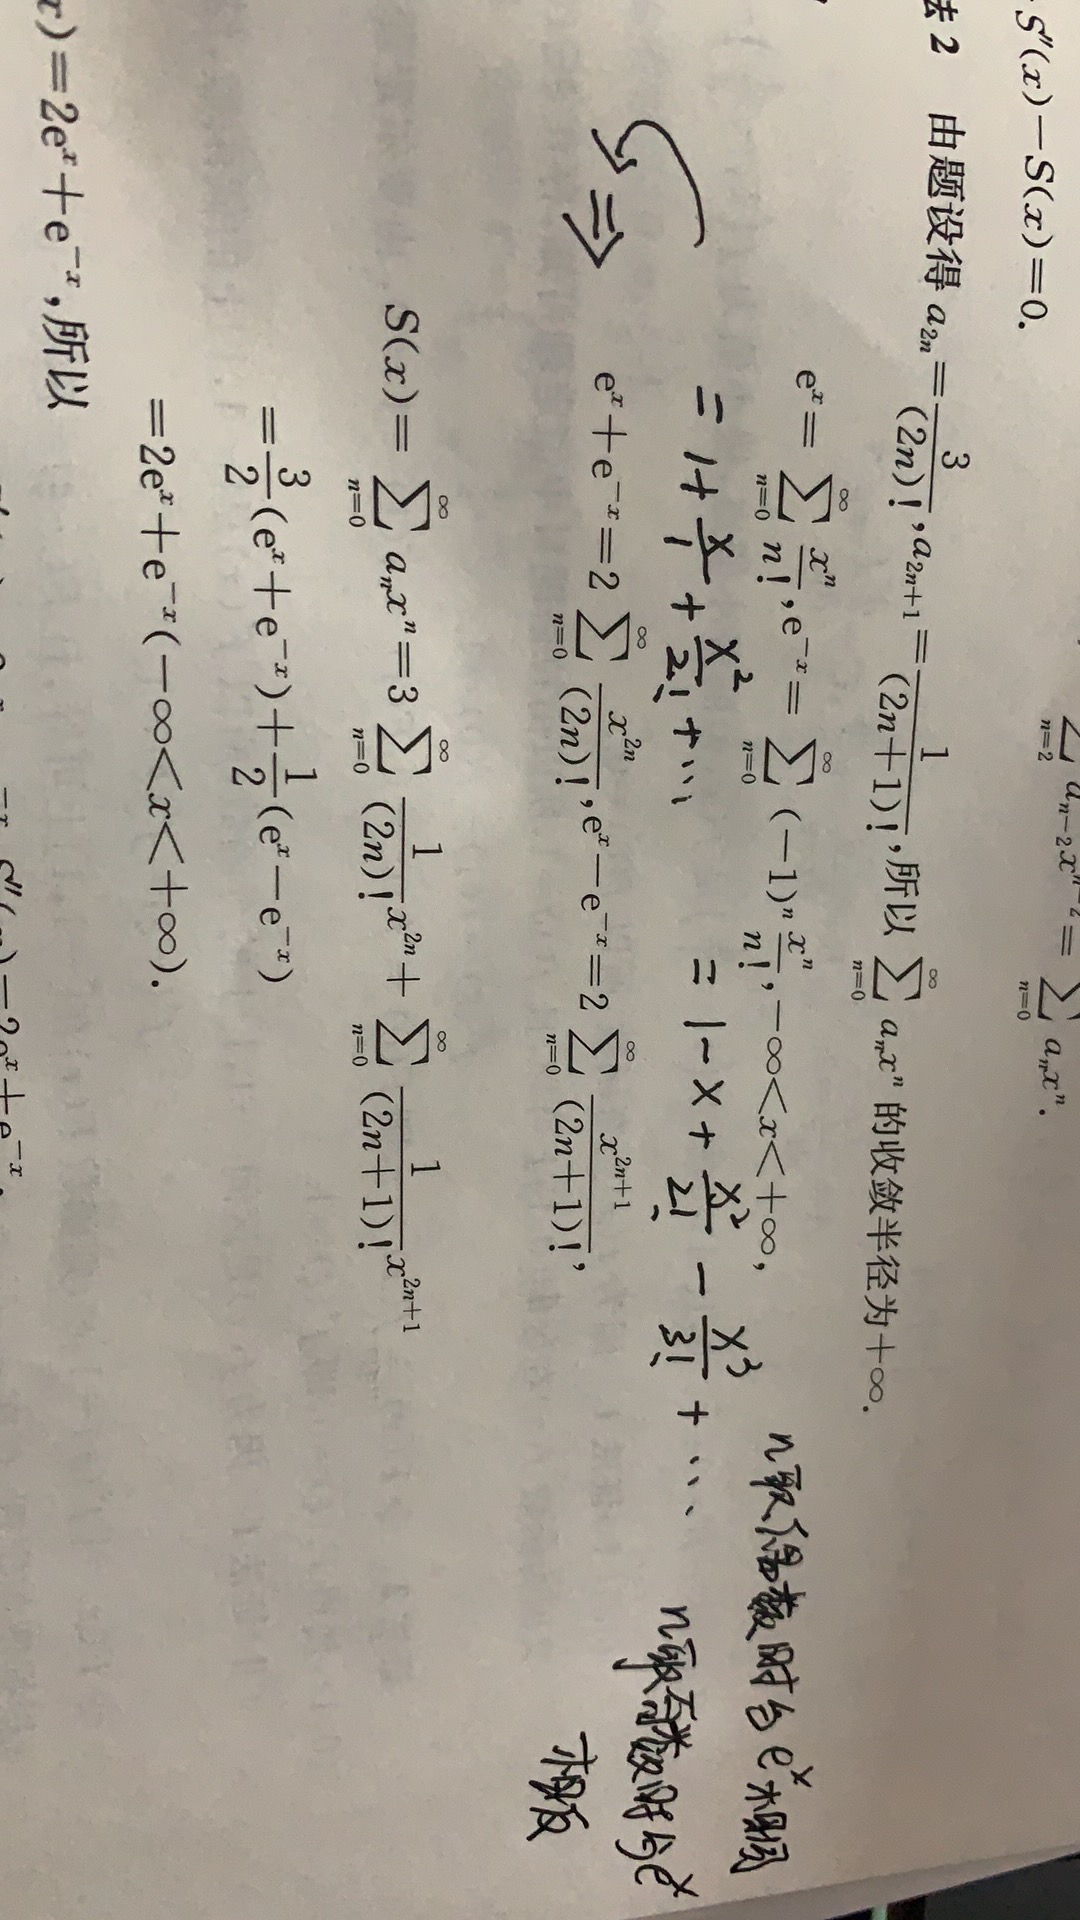 \sum_{n=2} a_{n-2}x^{n-2} = \sum_{n=0} a_n x^n.
S''(x)-S(x)=0.
法 2 由题设得 a_{2n}=\frac{3}{(2n)!},a_{2n+1}=\frac{1}{(2n+1)!},所以 \sum_{n=0}^{∞} a_n x^n 的收敛半径为+∞.
e^x=\sum_{n=0}^{∞}\frac{x^n}{n!},e^{-x}=\sum_{n=0}^{∞}(-1)^n\frac{x^n}{n!},-∞<x<+∞,
n取偶数时与e^x相同
=1+\frac{x}{1}+\frac{x^2}{2!}+… =1-x+\frac{x^2}{2!}-\frac{x^3}{3!}+…
n取奇数时与e^x
相反
⇒ e^x+e^{-x}=2\sum_{n=0}^{∞}\frac{x^{2n}}{(2n)!},e^x-e^{-x}=2\sum_{n=0}^{∞}\frac{x^{2n+1}}{(2n+1)!},
S(x)=\sum_{n=0}^{∞} a_n x^n=3\sum_{n=0}^{∞}\frac{1}{(2n)!}x^{2n}+\sum_{n=0}^{∞}\frac{1}{(2n+1)!}x^{2n+1}
=\frac{3}{2}(e^x+e^{-x})+\frac{1}{2}(e^x-e^{-x})
=2e^x+e^{-x}(-∞<x<+∞).
x)=2e^x+e^{-x},所以